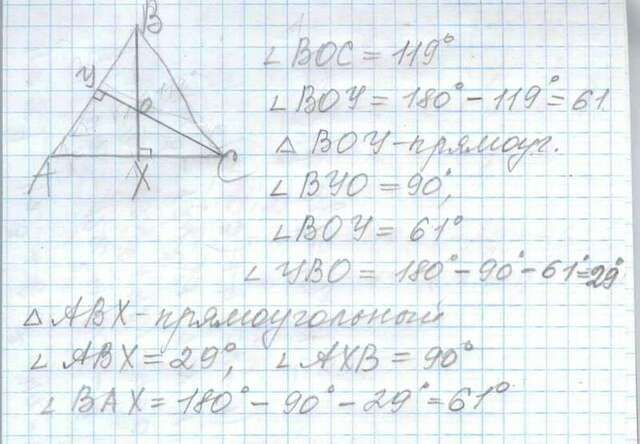 B
У
O
A
X
C
∠ BOC = 119°
∠ BOY = 180° - 119° = 61
△ BOY - прямоуг.
∠ BYO = 90°,
∠ BOY = 61°
∠ YBO = 180° - 90° - 61° = 29°
△ ABX - прямоугольный
∠ ABX = 29°, ∠ AXB = 90°
∠ BAX = 180° - 90° - 29° = 61°